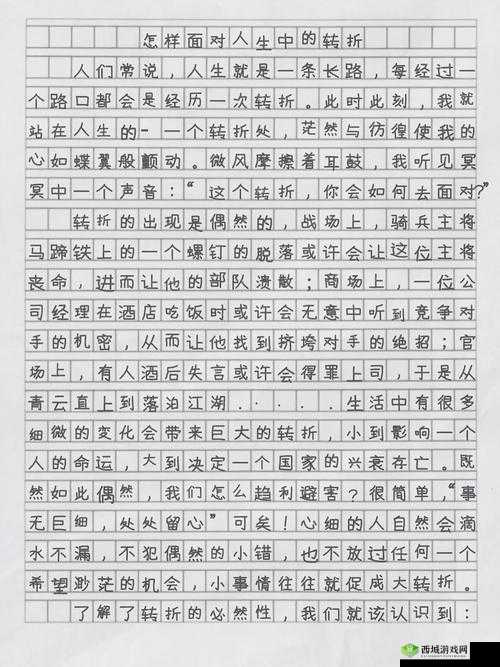 怎样面对人生中的转折
人们常说，人生就是一条长路，每经过一
个路口都会是经历一次转折。此时此刻，我就
站在人生的-一个转折处，茫然与彷徨使我的
心如蝶翼般颤动。微风摩擦着耳鼓，我听见冥
冥中一个声音：“这个转折，你会如何去面对？”
转折的出现是偶然的，战场上，骑兵主将
马蹄铁上的一个螺钉的脱落或许会让这位主将
丧命，进而让他的部队溃散；商场上，一位公
司经理在酒店吃饭时或许会无意中听到竞争对
手的机密，从而让他找到挤垮对手的绝招；官
场上，有人酒后失言或许会得罪上司，于是从
青云直上到落泊江湖．．．．．生活中有很多
细微的变化会带来巨大的转折，小到影响一个
人的命运，大到决定一个国家的兴衰存亡。既
然如此偶然，我们怎么趋利避害？很简单，“事
无巨细，处处留心”可矣！心细的人自然会滴
水不漏，不犯偶然的小错，也不放过任何一个
希望渺茫的机会，小事情往往就促成大转折。
了解了转折的必然性，我们就该认识到：
西城游戏网